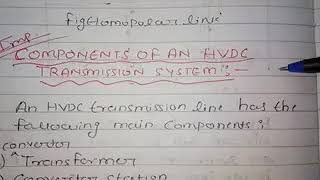 fig Homopolar link
Imp
COMPONENTS OF AN HVDC
TRANSMISSION SYSTEM :-
An HVDC transmission line has the
following main Components :
convertor
) ^ Transformer
) Convertor station